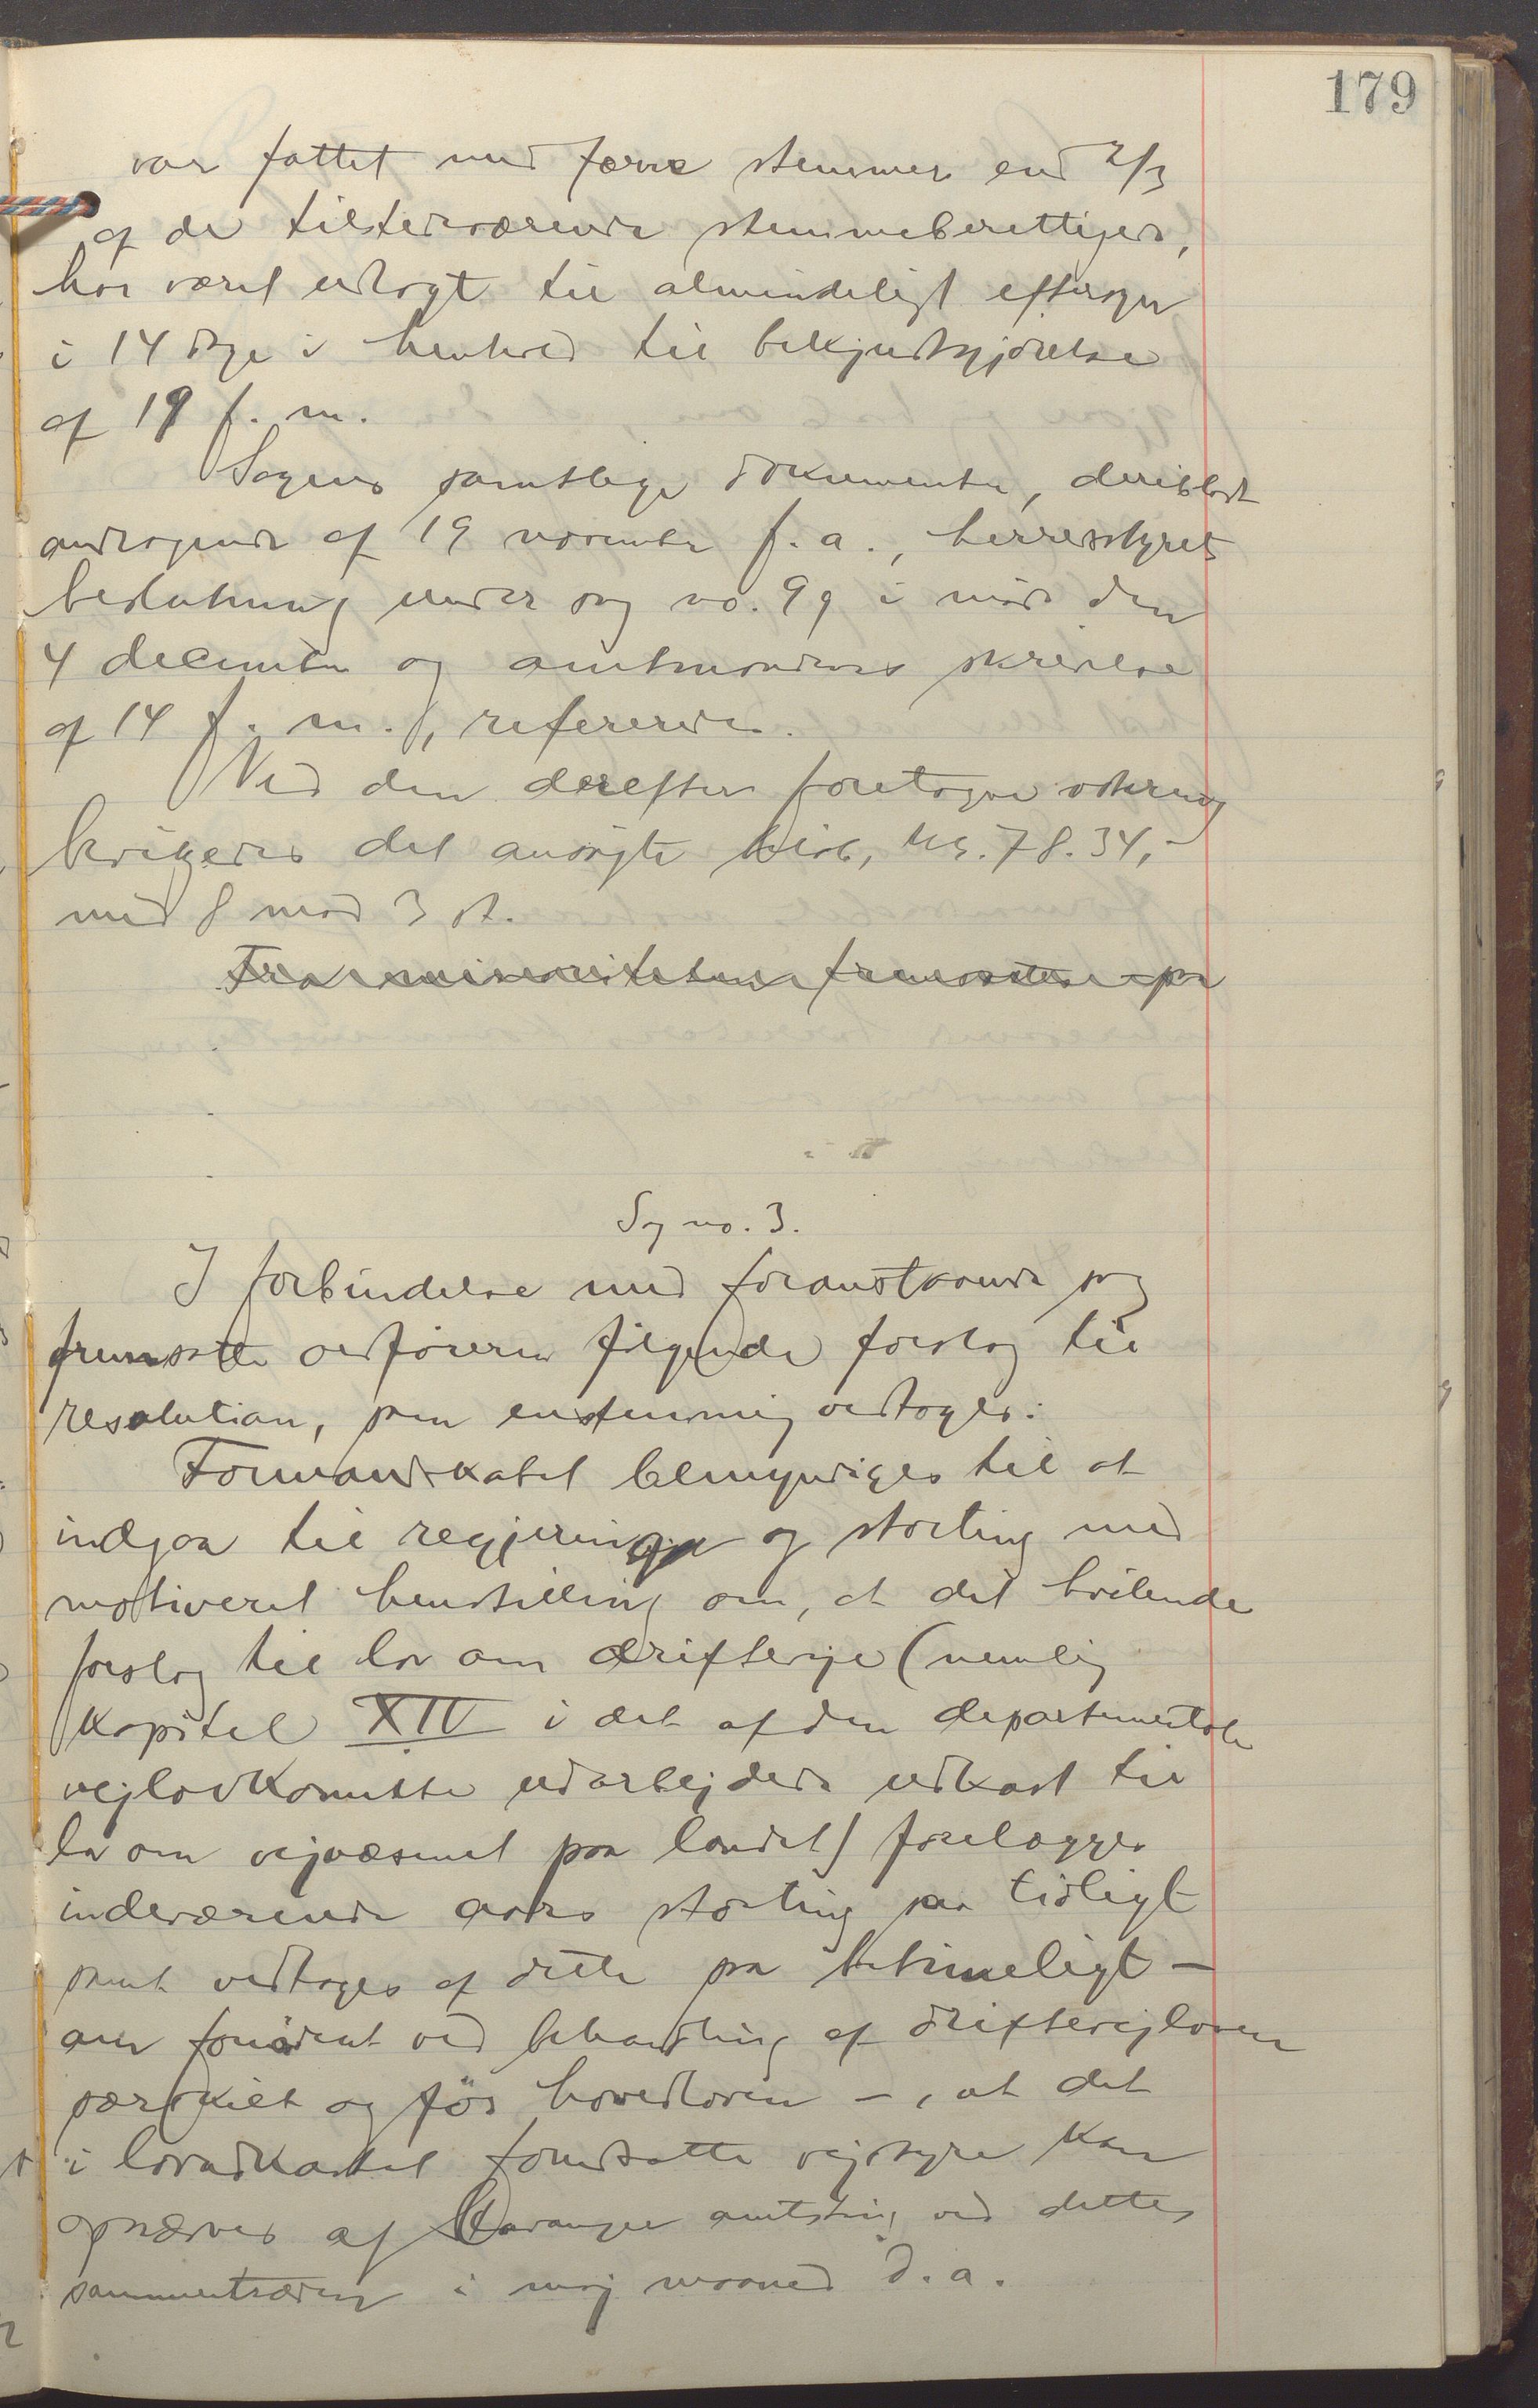 179
var fattet med færre stemmer end 2/3
af de tilstedeværende stemmeberettigede,
har været udlagt til almindeligt eftersyn
i 14 dage i henhold til bekjendtgjørelse
af 19 f. m.
Sagens samtlige dokumenter, deriblandt
andragende af 19 november f. a., herredsstyrets
beslutning under sag no. 99 i møde den
4 december og amtmandens skrivelse
af 14 f. m., refereredes.
Ved den derefter foretagne votering
bevilgedes det ansøgte beløb, kr. 78.34,-
med 8 mod 3 st.
Fra minoriteten fremsattes
Sag no. 3.
I forbindelse med foranstaaende sag
fremsatte ordføreren følgende forslag til
resolution, som enstemmig vedtoges:
Formandskabet bemyndiges til at
indgaa til regjering og storting med
motiveret henstilling om, at det hvilende
forslag til lov om driftsveje (nemlig
Kapitel XIV i det af den departementale
vejlovkomite udarbejdede udkast til
lov om vejvæsenet paa landet) forelægges
indeværende aars storting saa tidligt
samt vedtages af dette saa betimeligt -
om fornødent ved behandling af driftsvejloven
særskilt og før hovedloven -, at det
i lovudkastet forudsatte vejstyre kan
opnævnes af Stavanger amtsting ved dettes
sammentræden i maj maaned d. a.